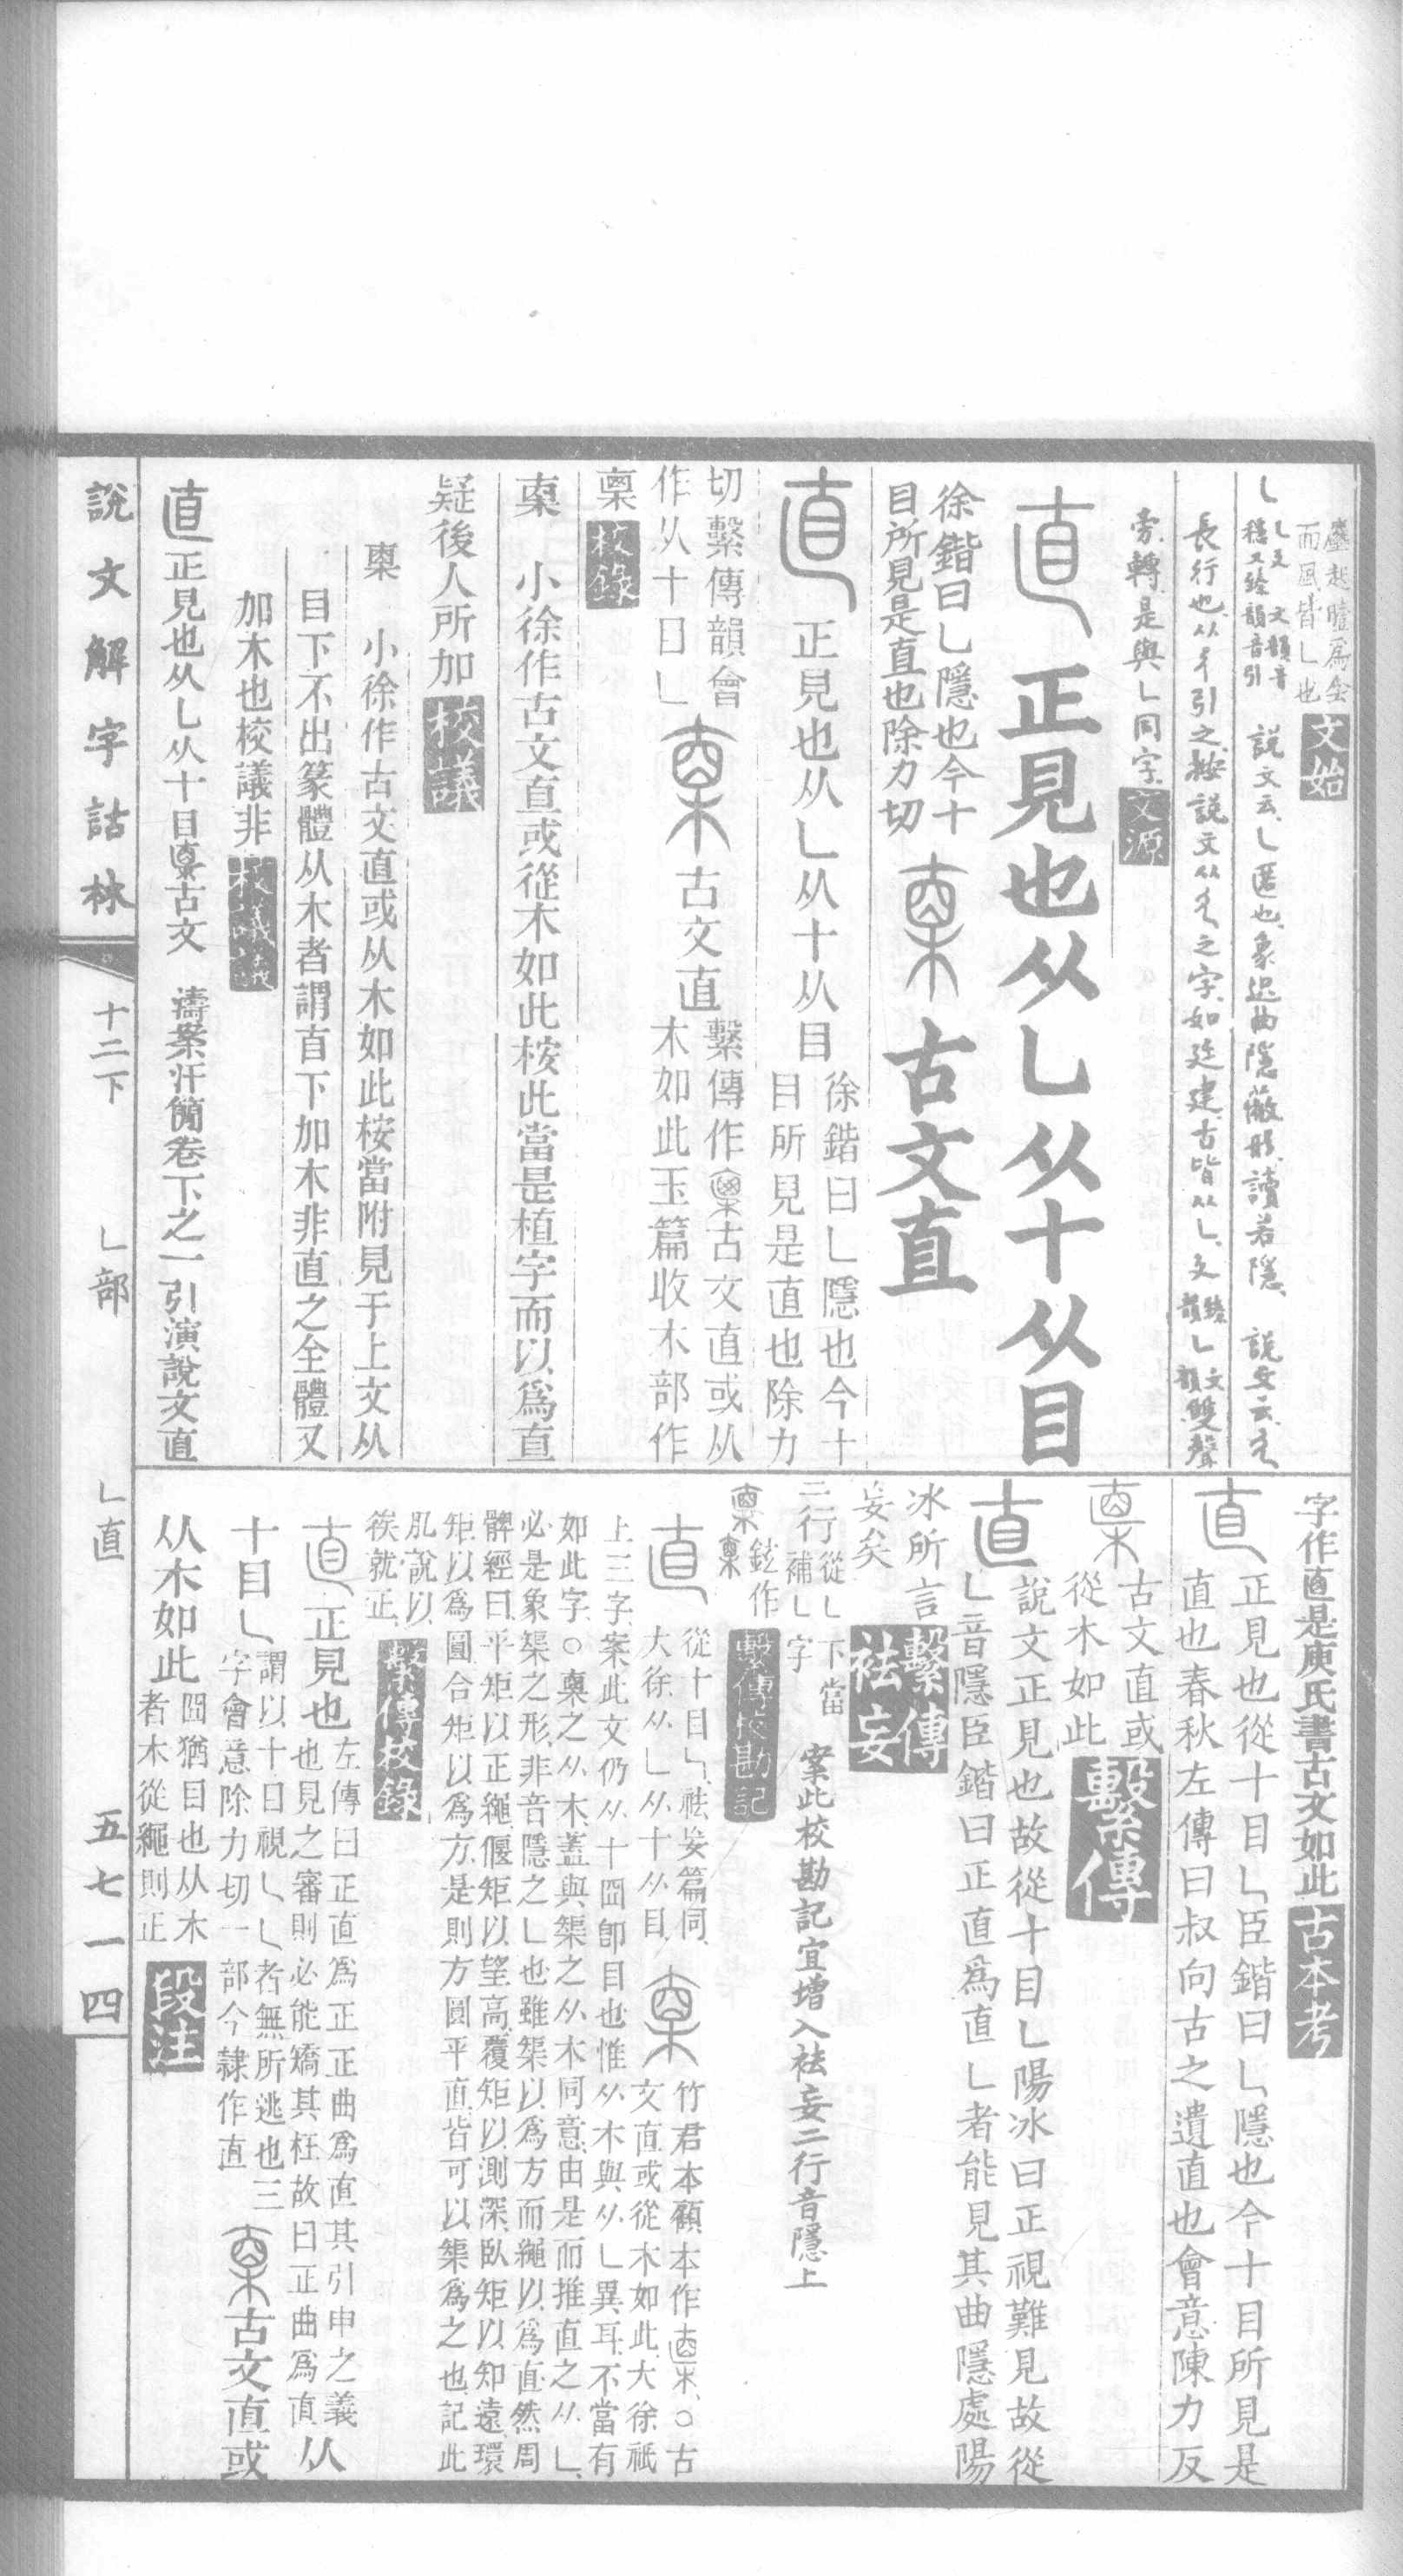 塵起曀爲会
而風皆乚也 文始
說文云乚匿也象迟曲隱蔽形讀若隱 說文云廴
長行也从彳引之按說文从廴之字如廷建古皆从乚
旁轉是與乚同字 文源
直 正見也从乚从十从目
徐鍇曰乚隱也今十
目所見是直也除力切
古文直
直 正見也从乚从十从目
徐鍇曰乚隱也今十
目所見是直也除力
切繫傳韻會
作从十目乚
古文直
繫傳作𣓟古文直或从
木如此玉篇收木部作
稾 校錄
𣓟 小徐作古文直或從木如此桉此當是植字而以爲直
疑後人所加 校議
𣓟 小徐作古文直或从木如此桉當附見于上文从
目下不出篆體从木者謂直下加木非直之全體又
加木也校議非 校議議
直 正見也从乚从十目𣓟古文 濤案汗簡卷下之一引演說文直
字作𥄂是庾氏書古文如此 古本考
直 正見也從十目乚臣鍇曰乚隱也今十目所見是
直也春秋左傳曰叔向古之遺直也會意陳力反
古文直或
從木如此 繫傳
直 說文正見也故從十目乚陽冰曰正視難見故從
乚音隱臣鍇曰正直爲直乚者能見其曲隱處陽
冰所言
妄矣 繫傳
祛妄
二行從乚下當
補乚字
案此校勘記宜增入祛妄二行音隱上
鉉作
繫傳校勘記
直 從十目乚祛妄篇同
大徐从乚从十从目
竹君本顧本作𣓟○古
文直或從木如此大徐祇
上三字案此文仍从十囧卽目也惟从木與从乚異耳不當有
如此字○𣓟之从木蓋與榘之从木同意由是而推直之从乚
必是象榘之形非音隱之乚也雖榘以爲方而繩以爲直然周
髀經曰平矩以正繩偃矩以望高覆矩以測深臥矩以知遠環
矩以爲圓合矩以爲方是則方圓平直皆可以榘爲之也記此
肊說以
俟就正 繫傳校錄
直 正見也
左傳曰正直爲正正曲爲直其引申之義
也見之審則必能矯其枉故曰正曲爲直
从
十目乚
謂以十目視乚乚者無所逃也三
字會意除力切一部今隸作直
古文直或
从木如此
囧猶目也从木
者木從繩則正
段注
說文解字詁林 十二下 乚部 乚直 五七一四